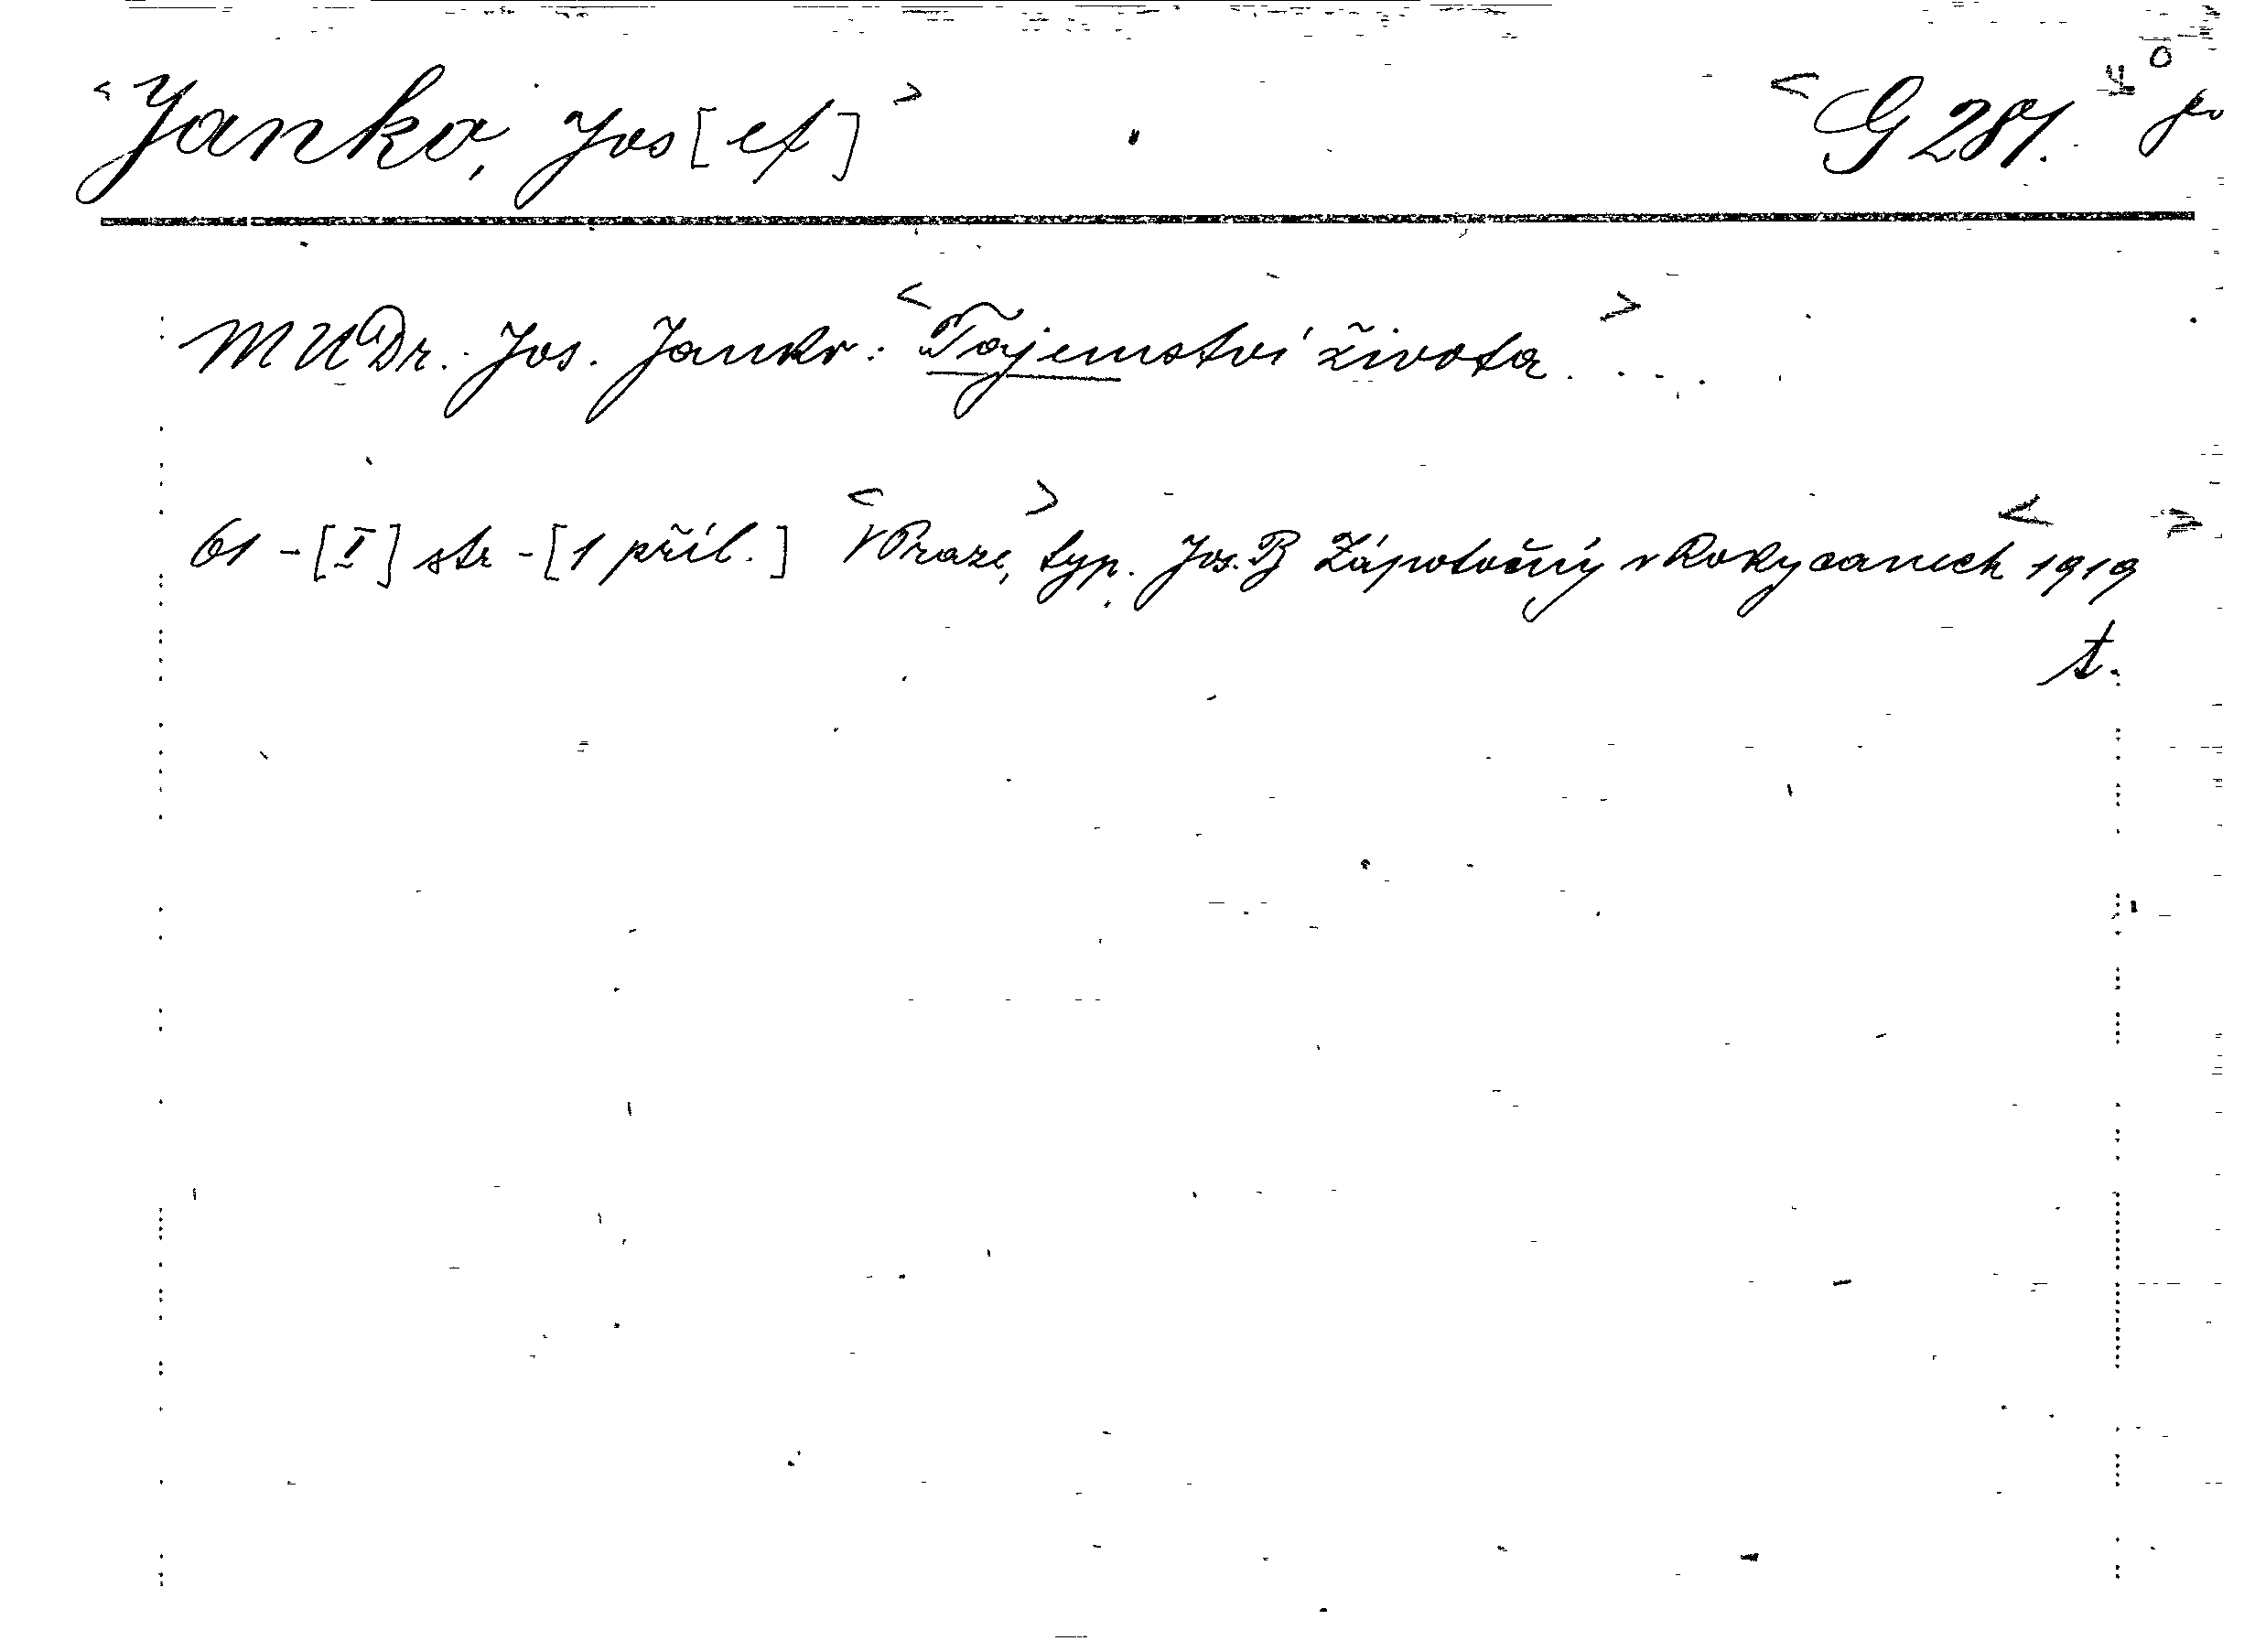 <Janko, Jos[ef]> <G 281.
MUDr. Jos. Janko: <Tajemství života ...>
61 - [I] str - [1 příl.] <V Praze,> typ. Jos. B Zápotočný v Rokycanech <1919>
t.